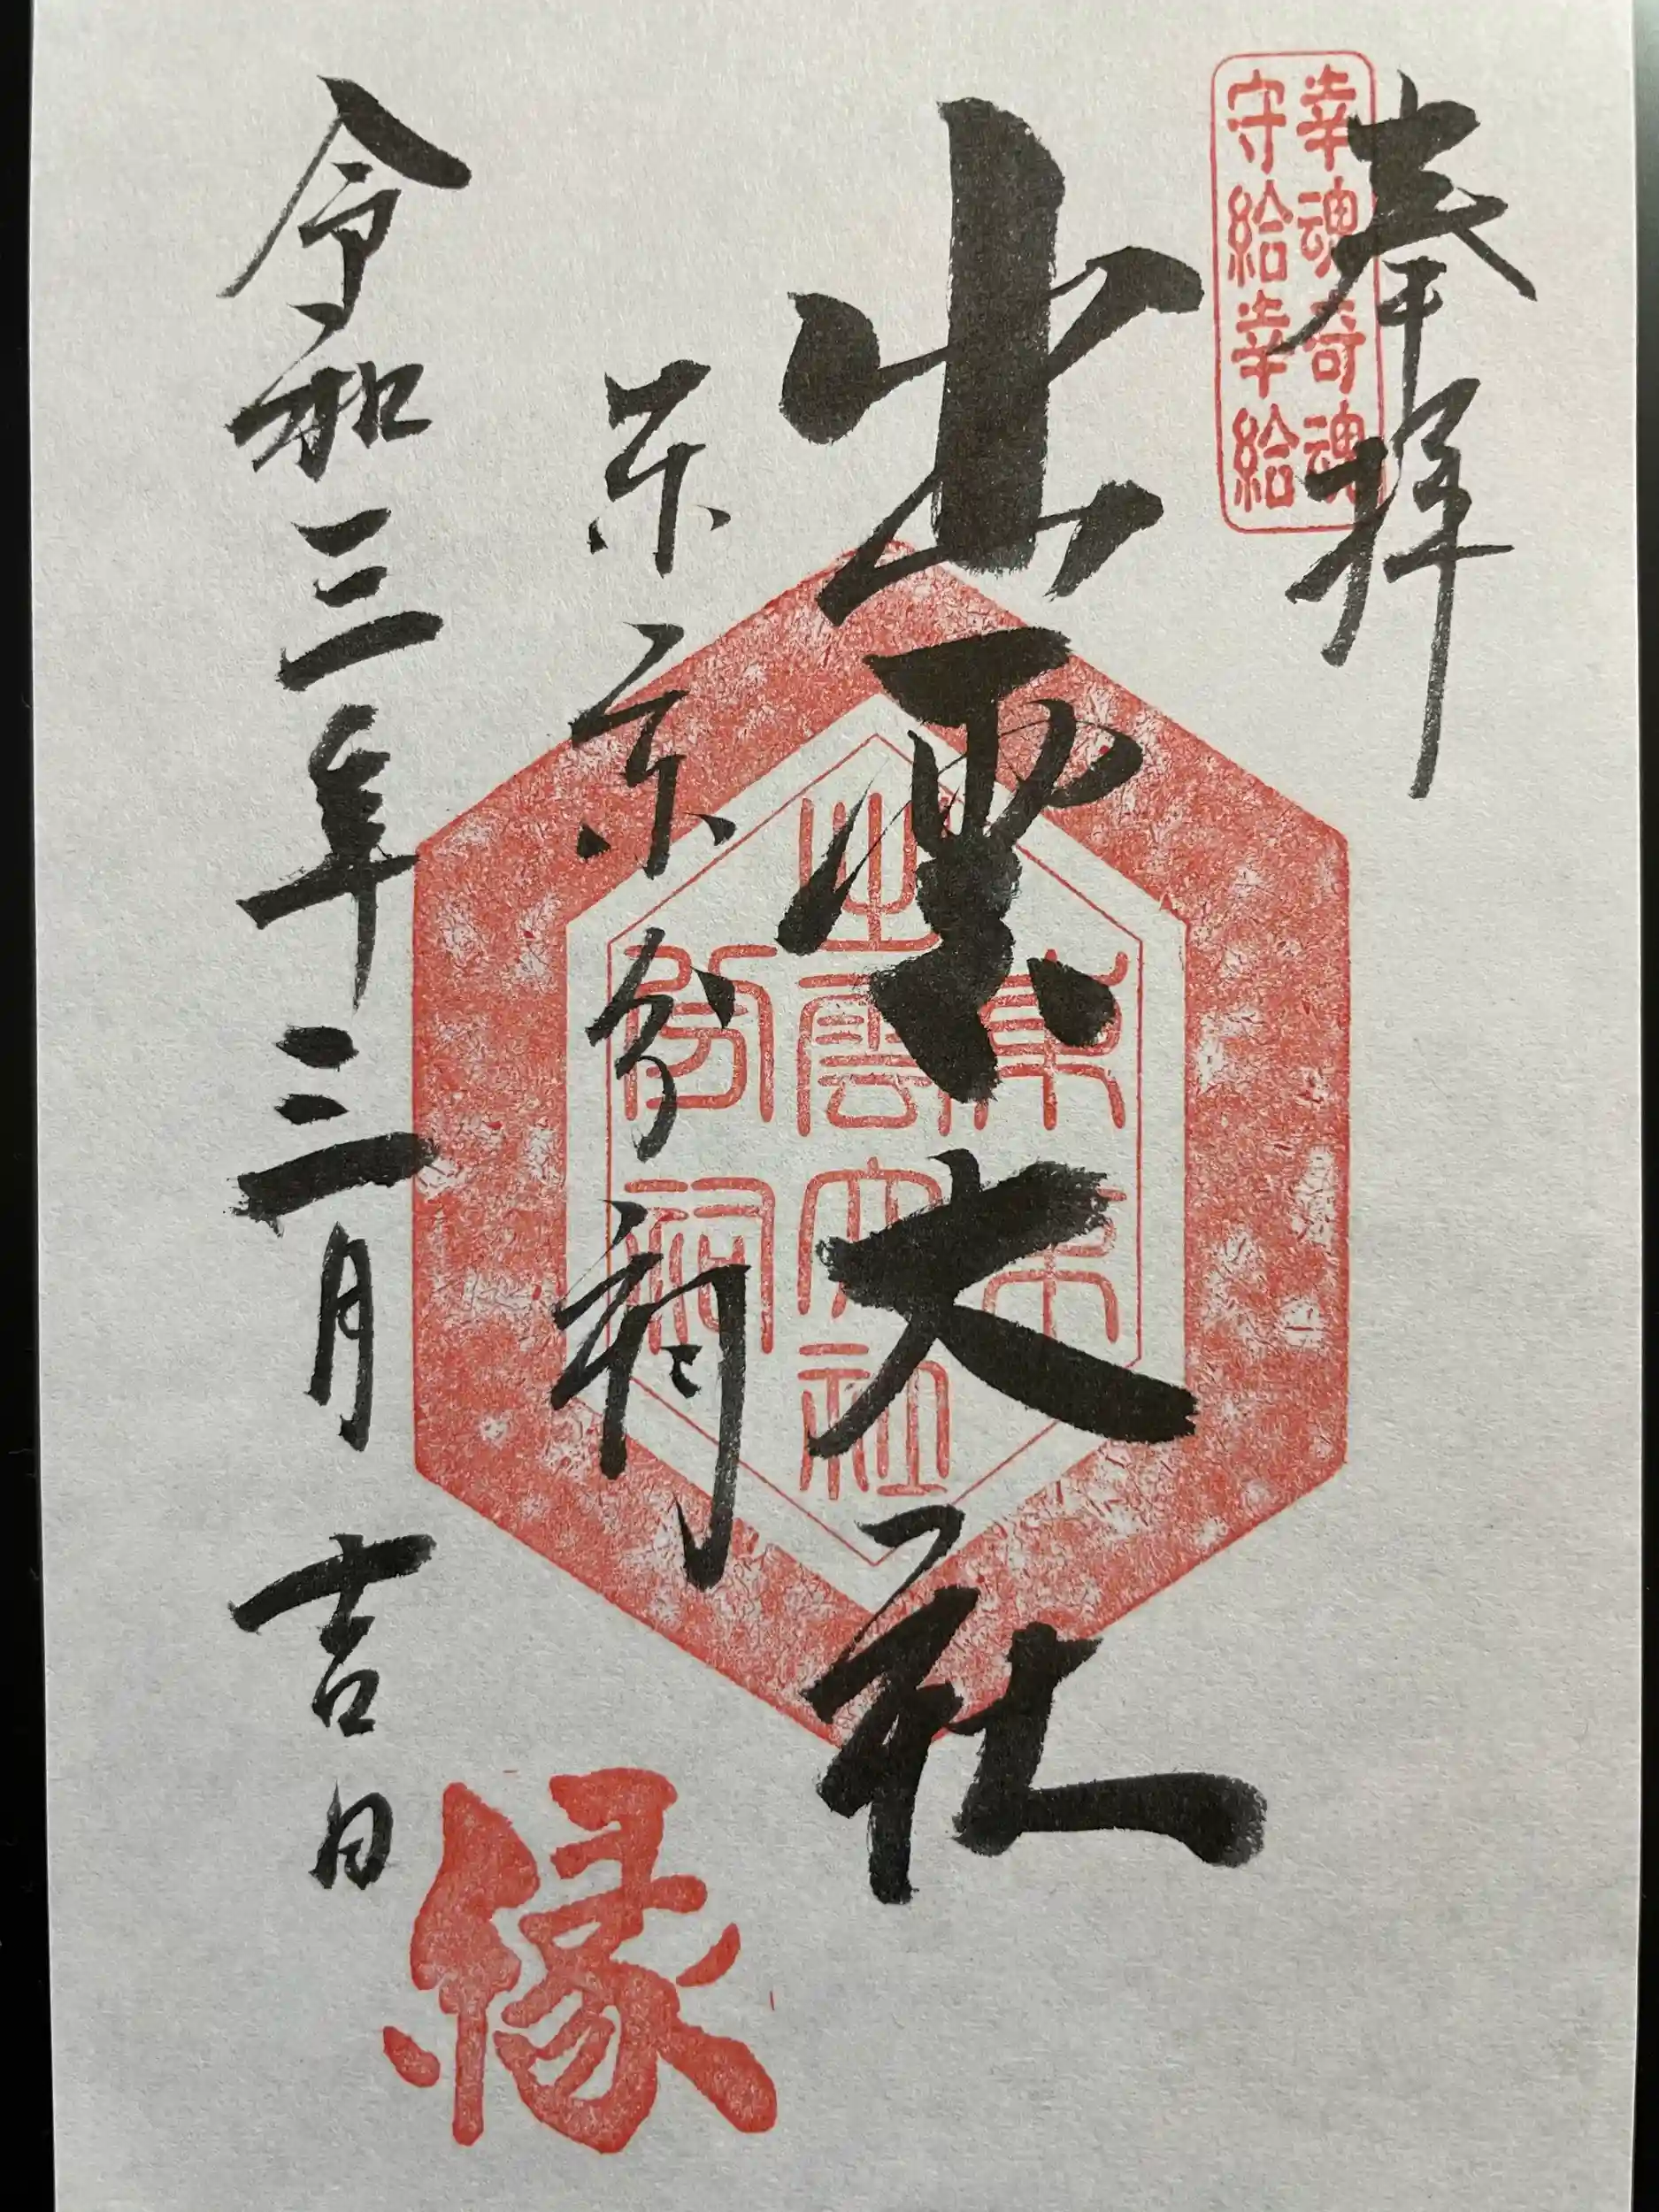 奉拝
幸魂奇魂
守給幸給
出雲大社
東京分祠
令和三年三月吉日
東京
出雲大社
分祠
縁